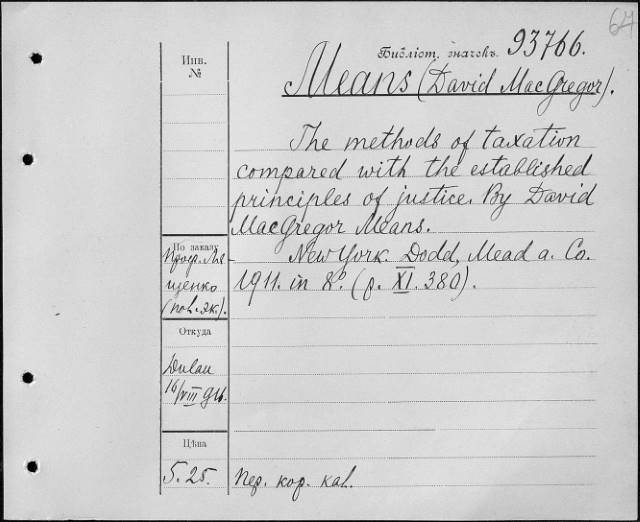 64
Библіот. значекъ 93766.
Инв.
№
Means (David MacGregor).
The methods of taxation
compared with the established
principles of justice. By David
MacGregor Means.
По заказу
New York. Dodd, Mead a. Co.
1911. in 8°. (p. XI. 380).
Проф. Ля-
щенко
Откуда
Dulau
16/VIII
Цѣна
5.25.
Пер. кор.